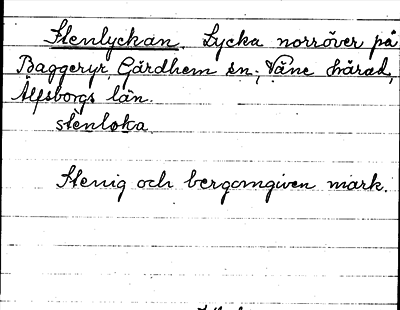 Stenlyckan. Lycka norröver på
Baggeryr, Gärdhem sn., Väne härad,
Älfsborgs län.
stènlωka.
Stenig och bergomgiven mark.